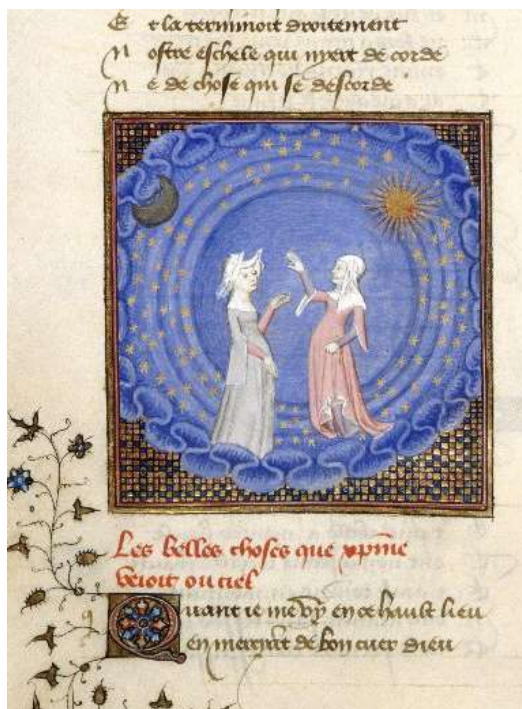 E t la terminoit droitement
N ostre eschele qui nyert de corde
N e de chose qui se descorde
Les belles choses que xpine
veioit ou ciel
Quant ie me vy en ce hault lieu
en de bon cuer dieu